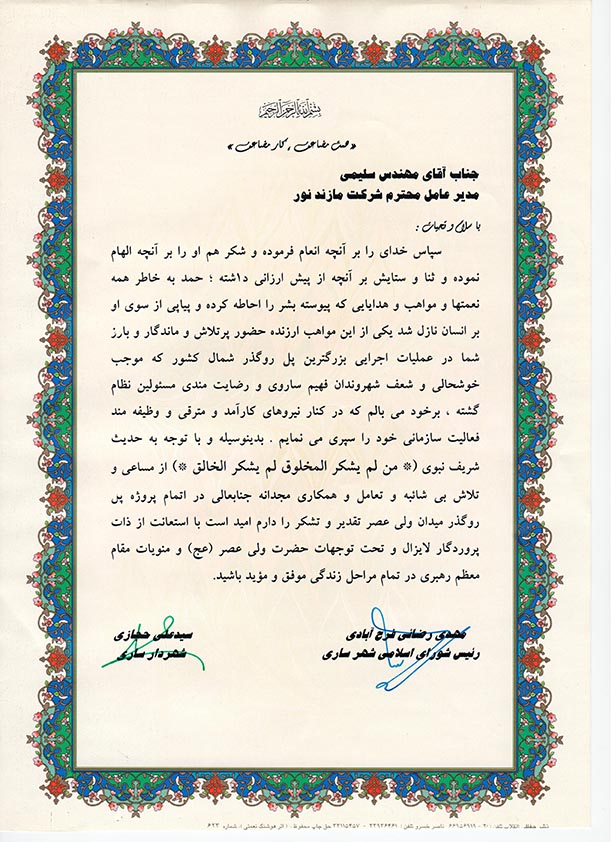 بسم الله الرحمن الرحیم
« همت مضاعف ، کار مضاعف »
جناب آقای مهندس سلیمی
مدیر عامل محترم شرکت مازند نور
با سلام و تحیات :
سپاس خدای را بر آنچه انعام فرموده و شکر هم او را بر آنچه الهام
نموده و ثنا و ستایش بر آنچه از پیش ارزانی د۱شته ؛ حمد به خاطر همه
نعمتها و مواهب و هدایایی که پیوسته بشر را احاطه کرده و پیاپی از سوی او
بر انسان نازل شد یکی از این مواهب ارزنده حضور پرتلاش و ماندگار و بارز
شما در عملیات اجرایی بزرگترین پل روگذر شمال کشور که موجب
خوشحالی و شعف شهروندان فهیم ساروی و رضایت مندی مسئولین نظام
گشته ، برخود می بالم که در کنار نیروهای کارآمد و مترقی و وظیفه مند
فعالیت سازمانی خود را سپری می نمایم . بدینوسیله و با توجه به حدیث
شریف نبوی (* من لم یشکر المخلوق لم یشکر الخالق *) از مساعی و
تلاش بی شائبه و تعامل و همکاری مجدانه جنابعالی در اتمام پروژه پل
روگذر میدان ولی عصر تقدیر و تشکر را دارم امید است با استعانت از ذات
پروردگار لایزال و تحت توجهات حضرت ولی عصر (عج) و منویات مقام
معظم رهبری در تمام مراحل زندگی موفق و مؤید باشید.
مهدی رمضانی فرح آبادی
رئیس شورای اسلامی شهر ساری
سیدعلی حجازی
شهردار ساری
نشر حفظ انقلاب تلفن : ۲۰ - ۶۶۹۵۶۹۱۹ ناصر خسرو تلفن : ۳۳۹۳۶۴۶۱ - ۳۳۱۱۵۳۵۷ حق چاپ محفوظ . ( اثر هوشنگ نعمتی ) . شماره ۶۲۳